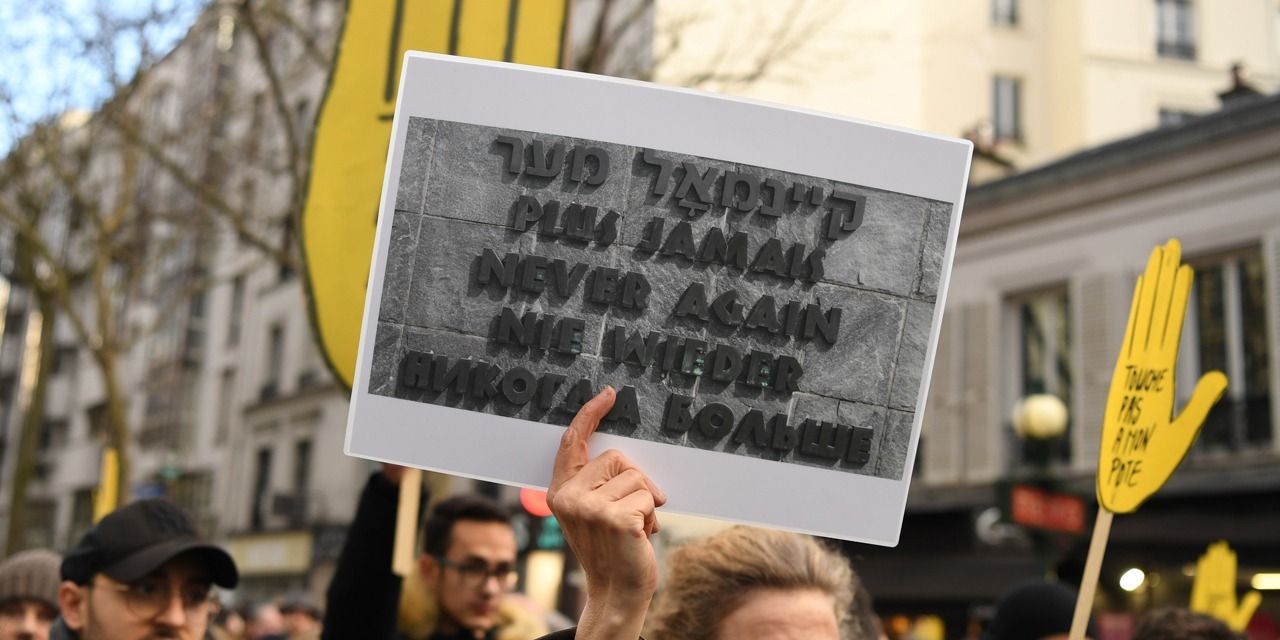 קיינמאָל מער
PLUS JAMAIS
NEVER AGAIN
NIE WIEDER
НИКОГДА БОЛЬШЕ
TOUCHE
PAS
A MON
POTE